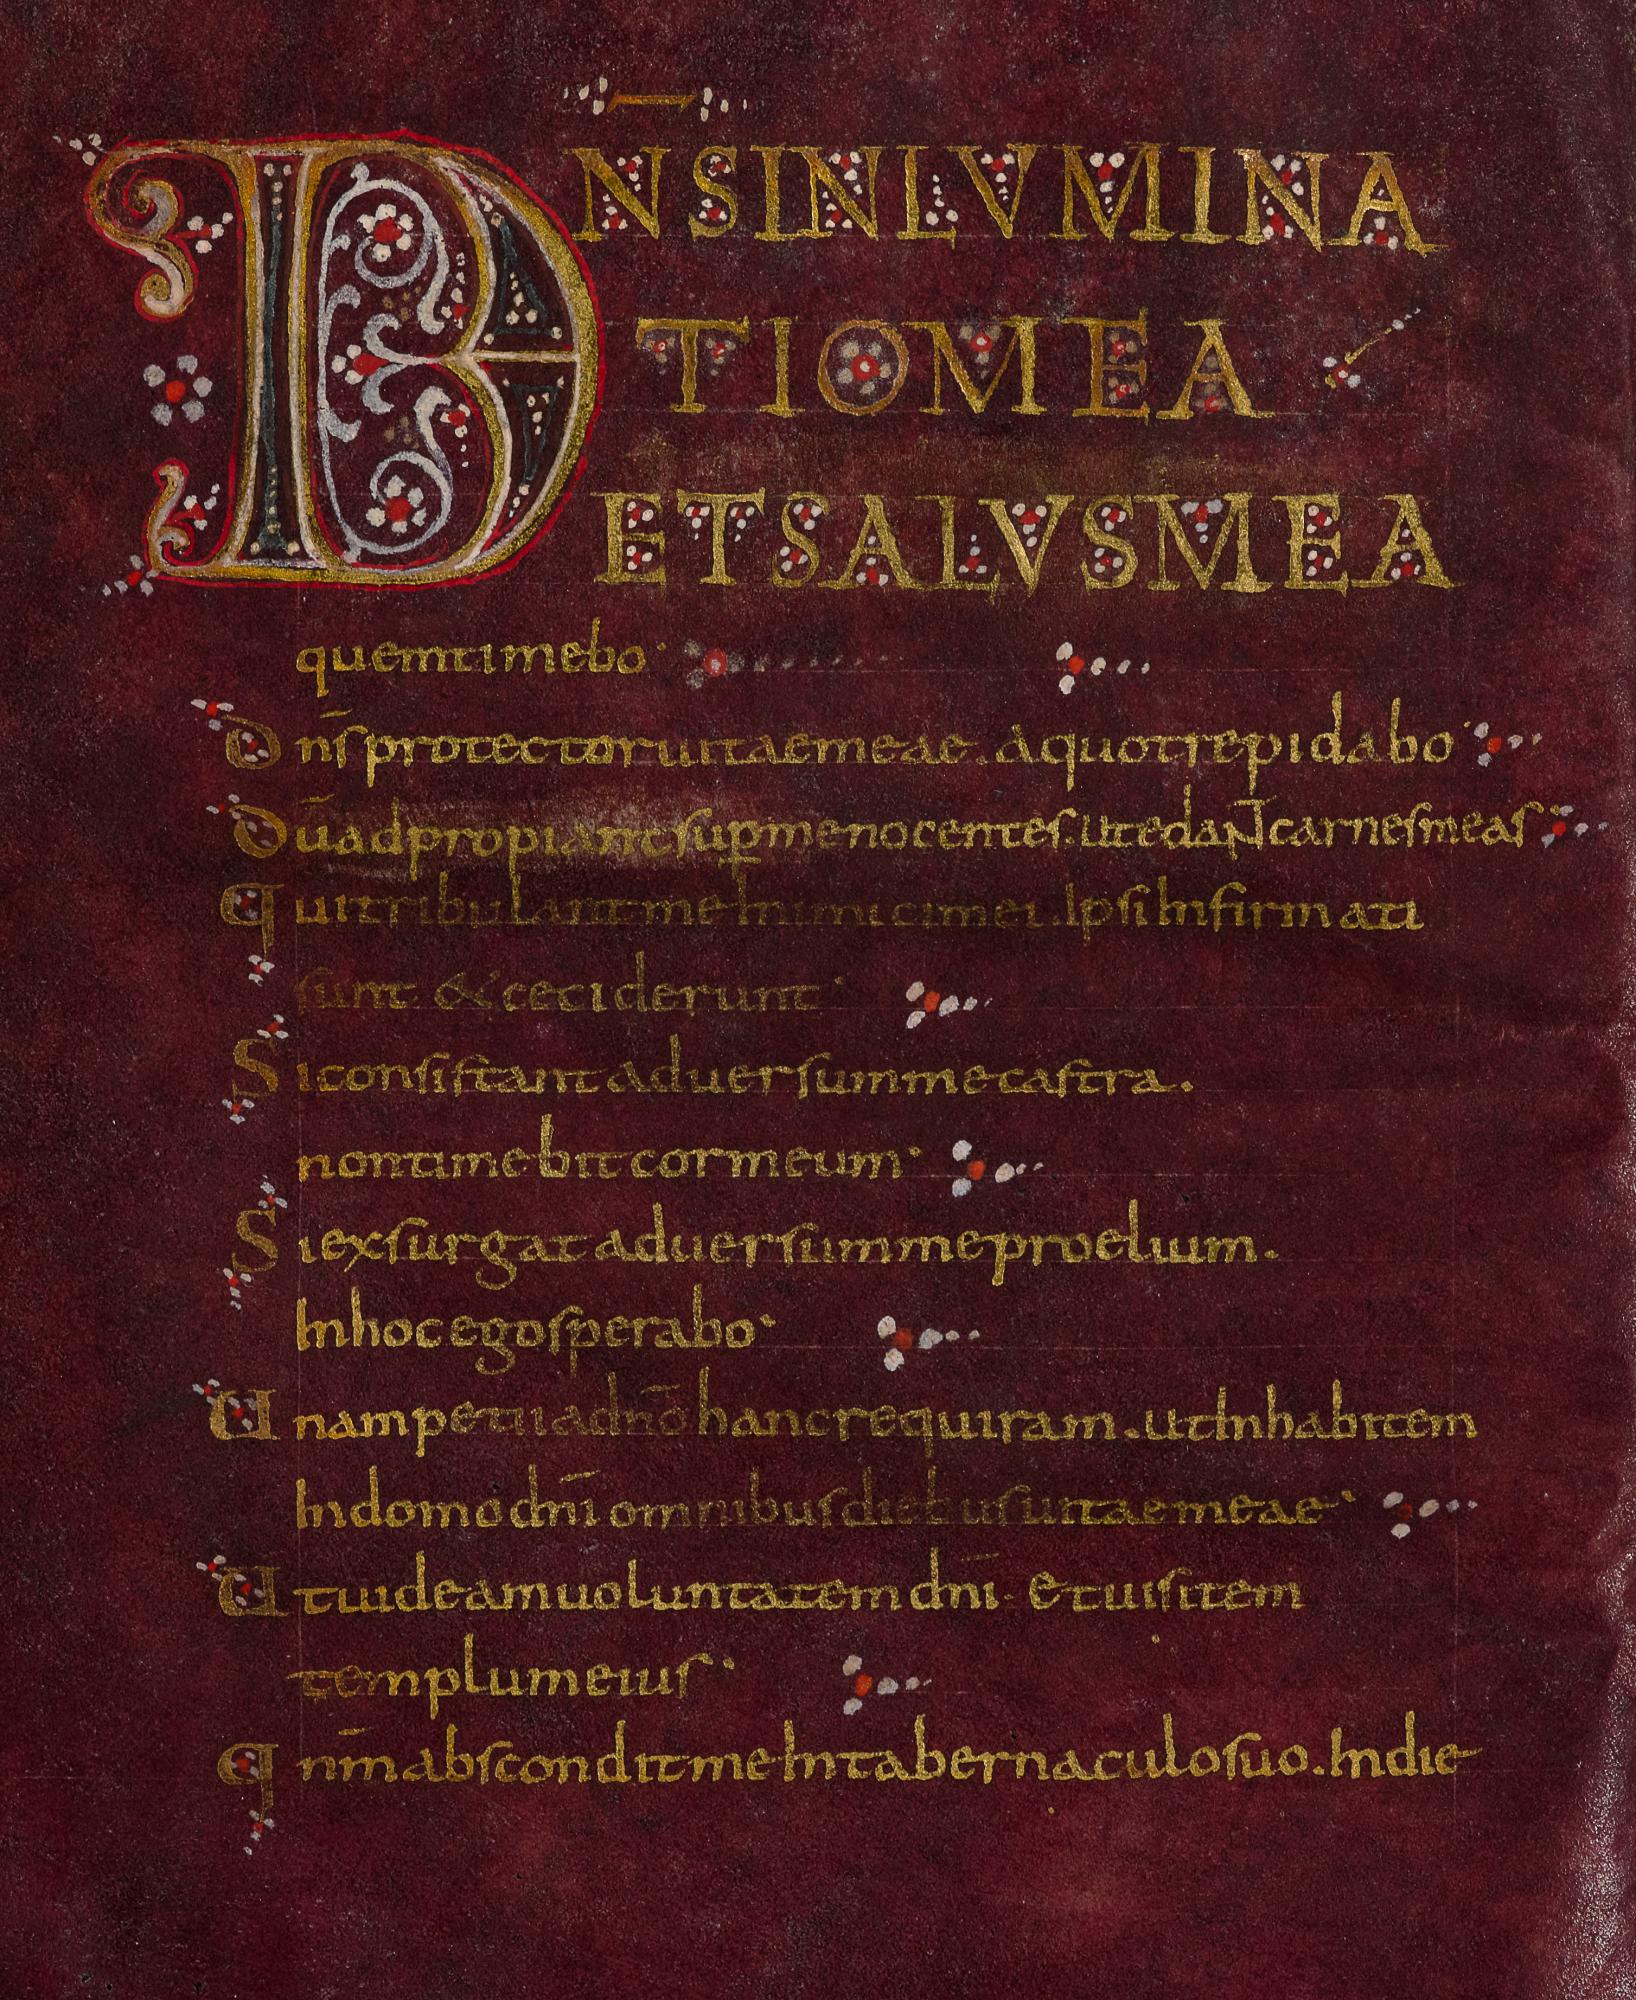 DN̄SINLVMINA
TIOMEA
ETSALVSMEA
quemtimebo·
Dn̄sprotectoruitaemeae. aquotrepidabo·
Dūadpropiantsup̱menocentes. UtedaNTcarnesmeas·
QuitribulantmeInimicimei. IpsiInfirmati
sunt &ceciderunt·
Siconsistantaduersummecastra.
nontimebitcormeum·
Siexsurgataduersummeproelium.
Inhocegosperabo·
Unampetiiadnōhancrequiram. utInhabitem
Indomodn̄i omnibusdiebusuitaemeae·
Utuideamuoluntatemdn̄i· etuisitem
templumeius·
Qnm̄absconditmeIntabernaculosuo. Indie